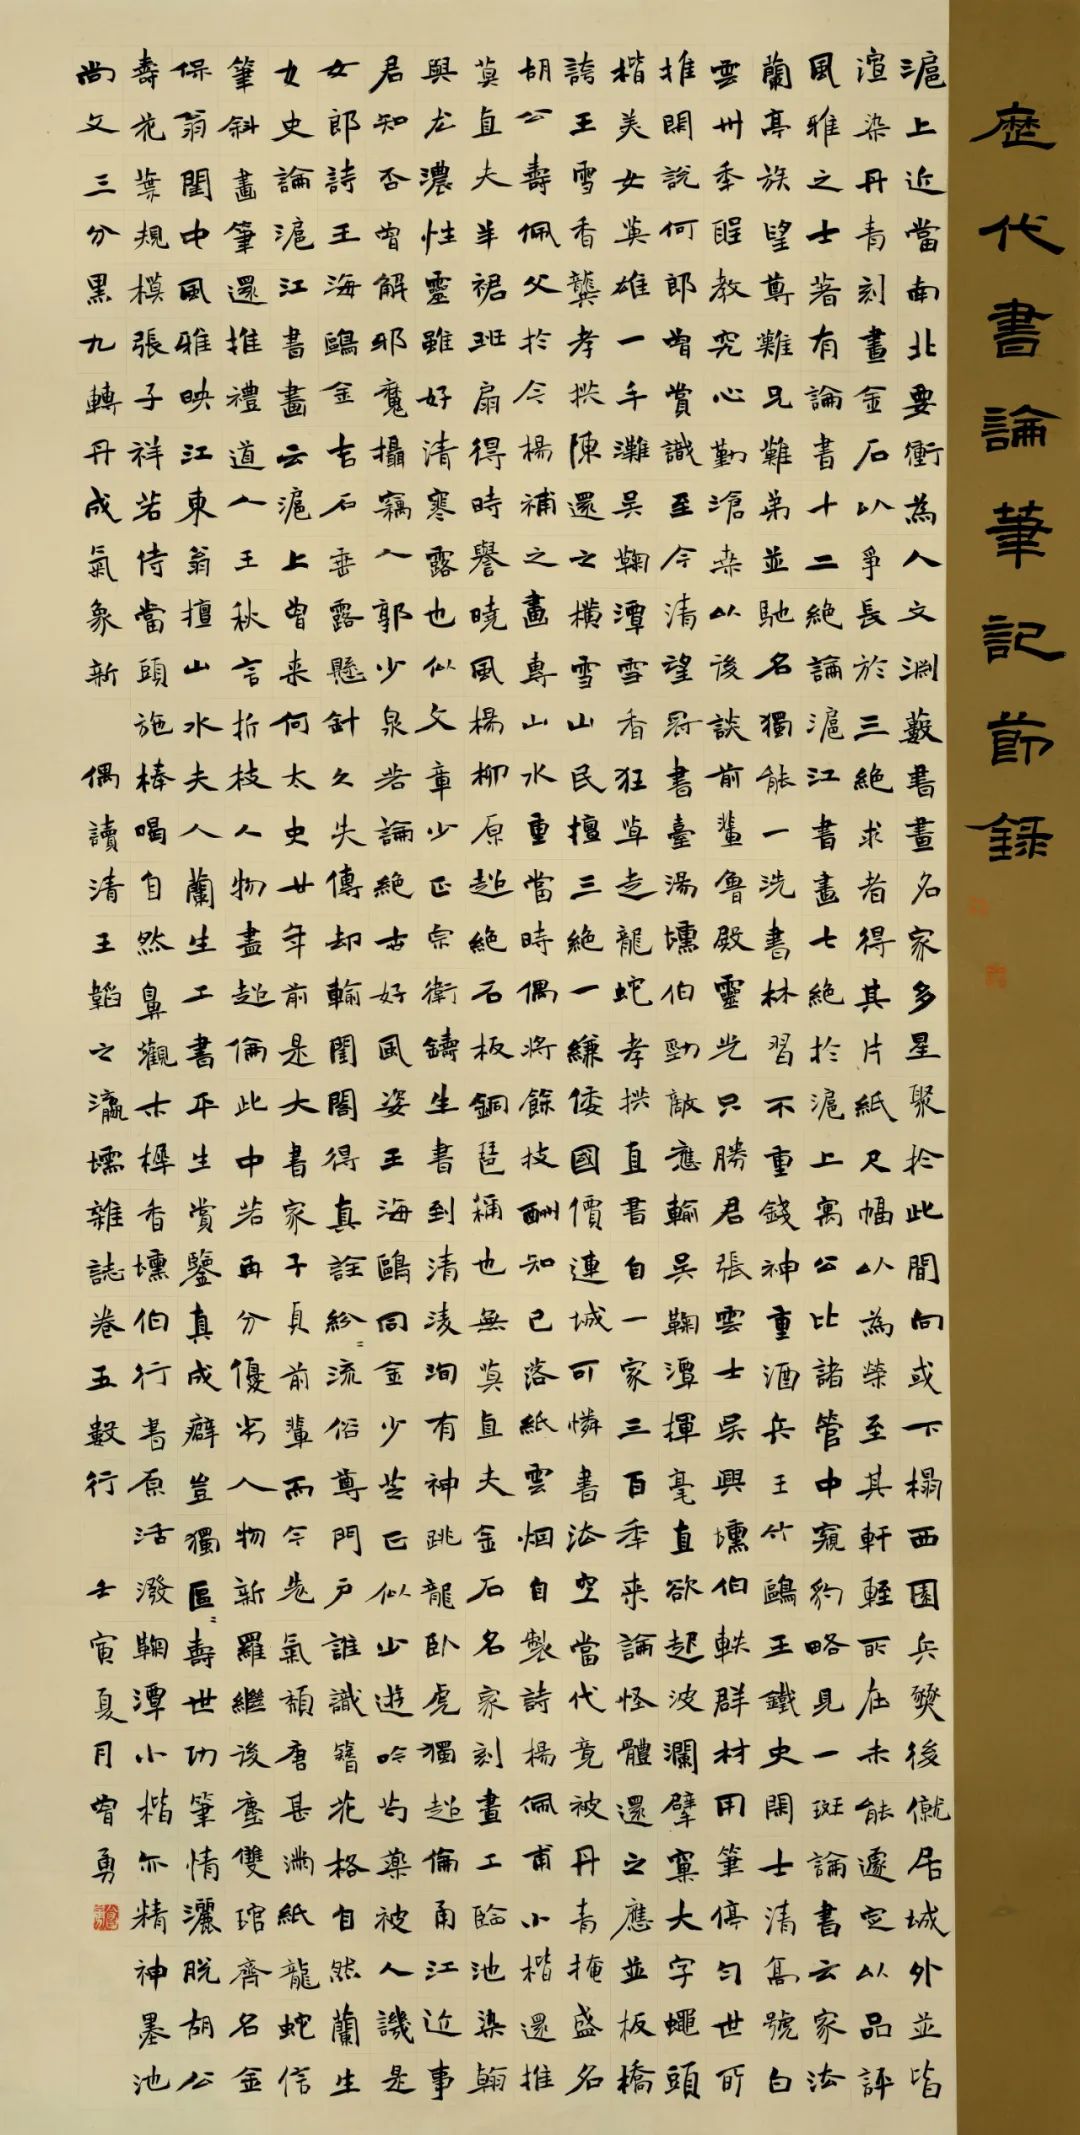 歷代書論筆記節録
滬上近當南北要衝為人文淵藪書畫名家多星聚於此間向或下榻西園兵燹後僦居城外並皆
渲染丹青刻畫金石以爭長於三絕求者得其片紙尺幅以為榮至其軒輊所在未能遽定以品評
風雅之士著有論書十二絕論滬江書畫七絕於滬上寓公比諸管中窺豹略見一斑論書云家法
蘭亭族望尊難兄難弟並馳名獨能一洗書林習不重錢神重酒兵王竹鷗王鐵史閑士清寯號白
雲卅季教究心勤滄桒以後談前輩魯殿靈光只勝君張雲士吳興壎伯軼群材用筆停勻世所
推閑說何郎曾賞識至今清望冠書臺湯壎伯勁敵應輸吳鞠潭揮毫直欲起波瀾擘窠大字蠅頭
楷美女英雄一手灘吳鞠潭雪香狂草走龍蛇孝拱直書自一家三百季来論怪體還之應並板橋
誇王雪香龔孝拱陳還之橫雪山民擅三絕一縑倭國價連城可憐書法空當代竟被丹青掩盛名
胡公壽佩父於今楊補之畫專山水重當時偶將餘技酬知己落紙雲烟自製詩楊佩甫小楷還推
莫直夫羊裙班扇得時譽曉風楊柳原超絕石板銅琶稱也無莫直夫金石名家刻畫工臨池染翰
與尤濃性靈雖好清寒露也似文章少正宗衛鑄生書到清淩洵有神跳龍臥虎獨超倫甬江近事
君知否曾解邪魔攝竊人郭少泉若論絕古好風姿王海鷗同金少芝已似少遊吟芍藥被人譏是
女郎詩王海鷗金吉石垂露懸針久失傳却輸閨閣得真詮紛〻流俗尊門戶誰識簪花格自然蘭生
女史論滬江書畫云滬上曾来何太史廿年前是大書家子貞前輩而今老氣頹唐甚滿紙龍蛇信
筆斜畫筆還推禮道人王秋言折枝人物盡超倫此中若再分優劣人物新羅繼後塵雙琯齊名金
保翁閨中風雅映江東翁擅山水夫人蘭生工書平生賞鑒真成癖豈獨區〻壽世功筆情灑脫胡公
壽花葉規模張子祥若侍當頭施棒喝自然鼻觀木樨香壎伯行書原活潑鞠潭小楷亦精神墨池
尚欠三分黑九轉丹成氣象新 偶讀清王韜之瀛壖雜誌卷五數行 壬寅夏月曾勇